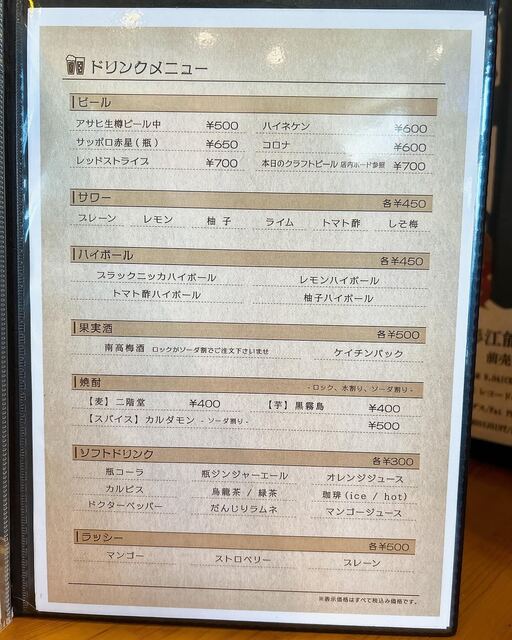 ドリンクメニュー
ビール
アサヒ生樽ビール中 ¥500 ハイネケン ¥600
サッポロ赤星(瓶) ¥650 コロナ ¥600
レッドストライプ ¥700 本日のクラフトビール 店内ボード参照 ¥700
サワー 各¥450
プレーン レモン 柚子 ライム トマト酢 しそ梅
ハイボール 各¥450
ブラックニッカハイボール レモンハイボール
トマト酢ハイボール 柚子ハイボール
果実酒 各¥500
南高梅酒 ロックかソーダ割でご注文下さいませ ケイチンパック
焼酎 - ロック、水割り、ソーダ割り -
【麦】二階堂 ¥400 【芋】黒霧島 ¥400
【スパイス】カルダモン - ソーダ割り - ¥500
ソフトドリンク 各¥300
瓶コーラ 瓶ジンジャーエール オレンジジュース
カルピス 烏龍茶 / 緑茶 珈琲(ice / hot)
ドクターペッパー だんじりラムネ マンゴージュース
ラッシー 各¥500
マンゴー ストロベリー プレーン
※表示価格はすべて税込み価格です。